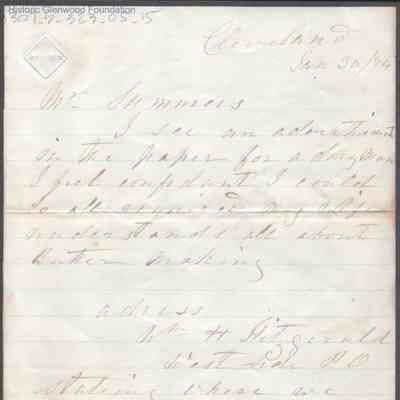 Historic Glenwood Foundation
301-5-323-05-15
Cleveland
Jan 30/84
Mr Summers
I see an
in the paper for a dairyman
I feel confident I could
do all required my wife
understands all about
Butter making
adress
Wm H Fitzgerald
West Side P.O
stating where we